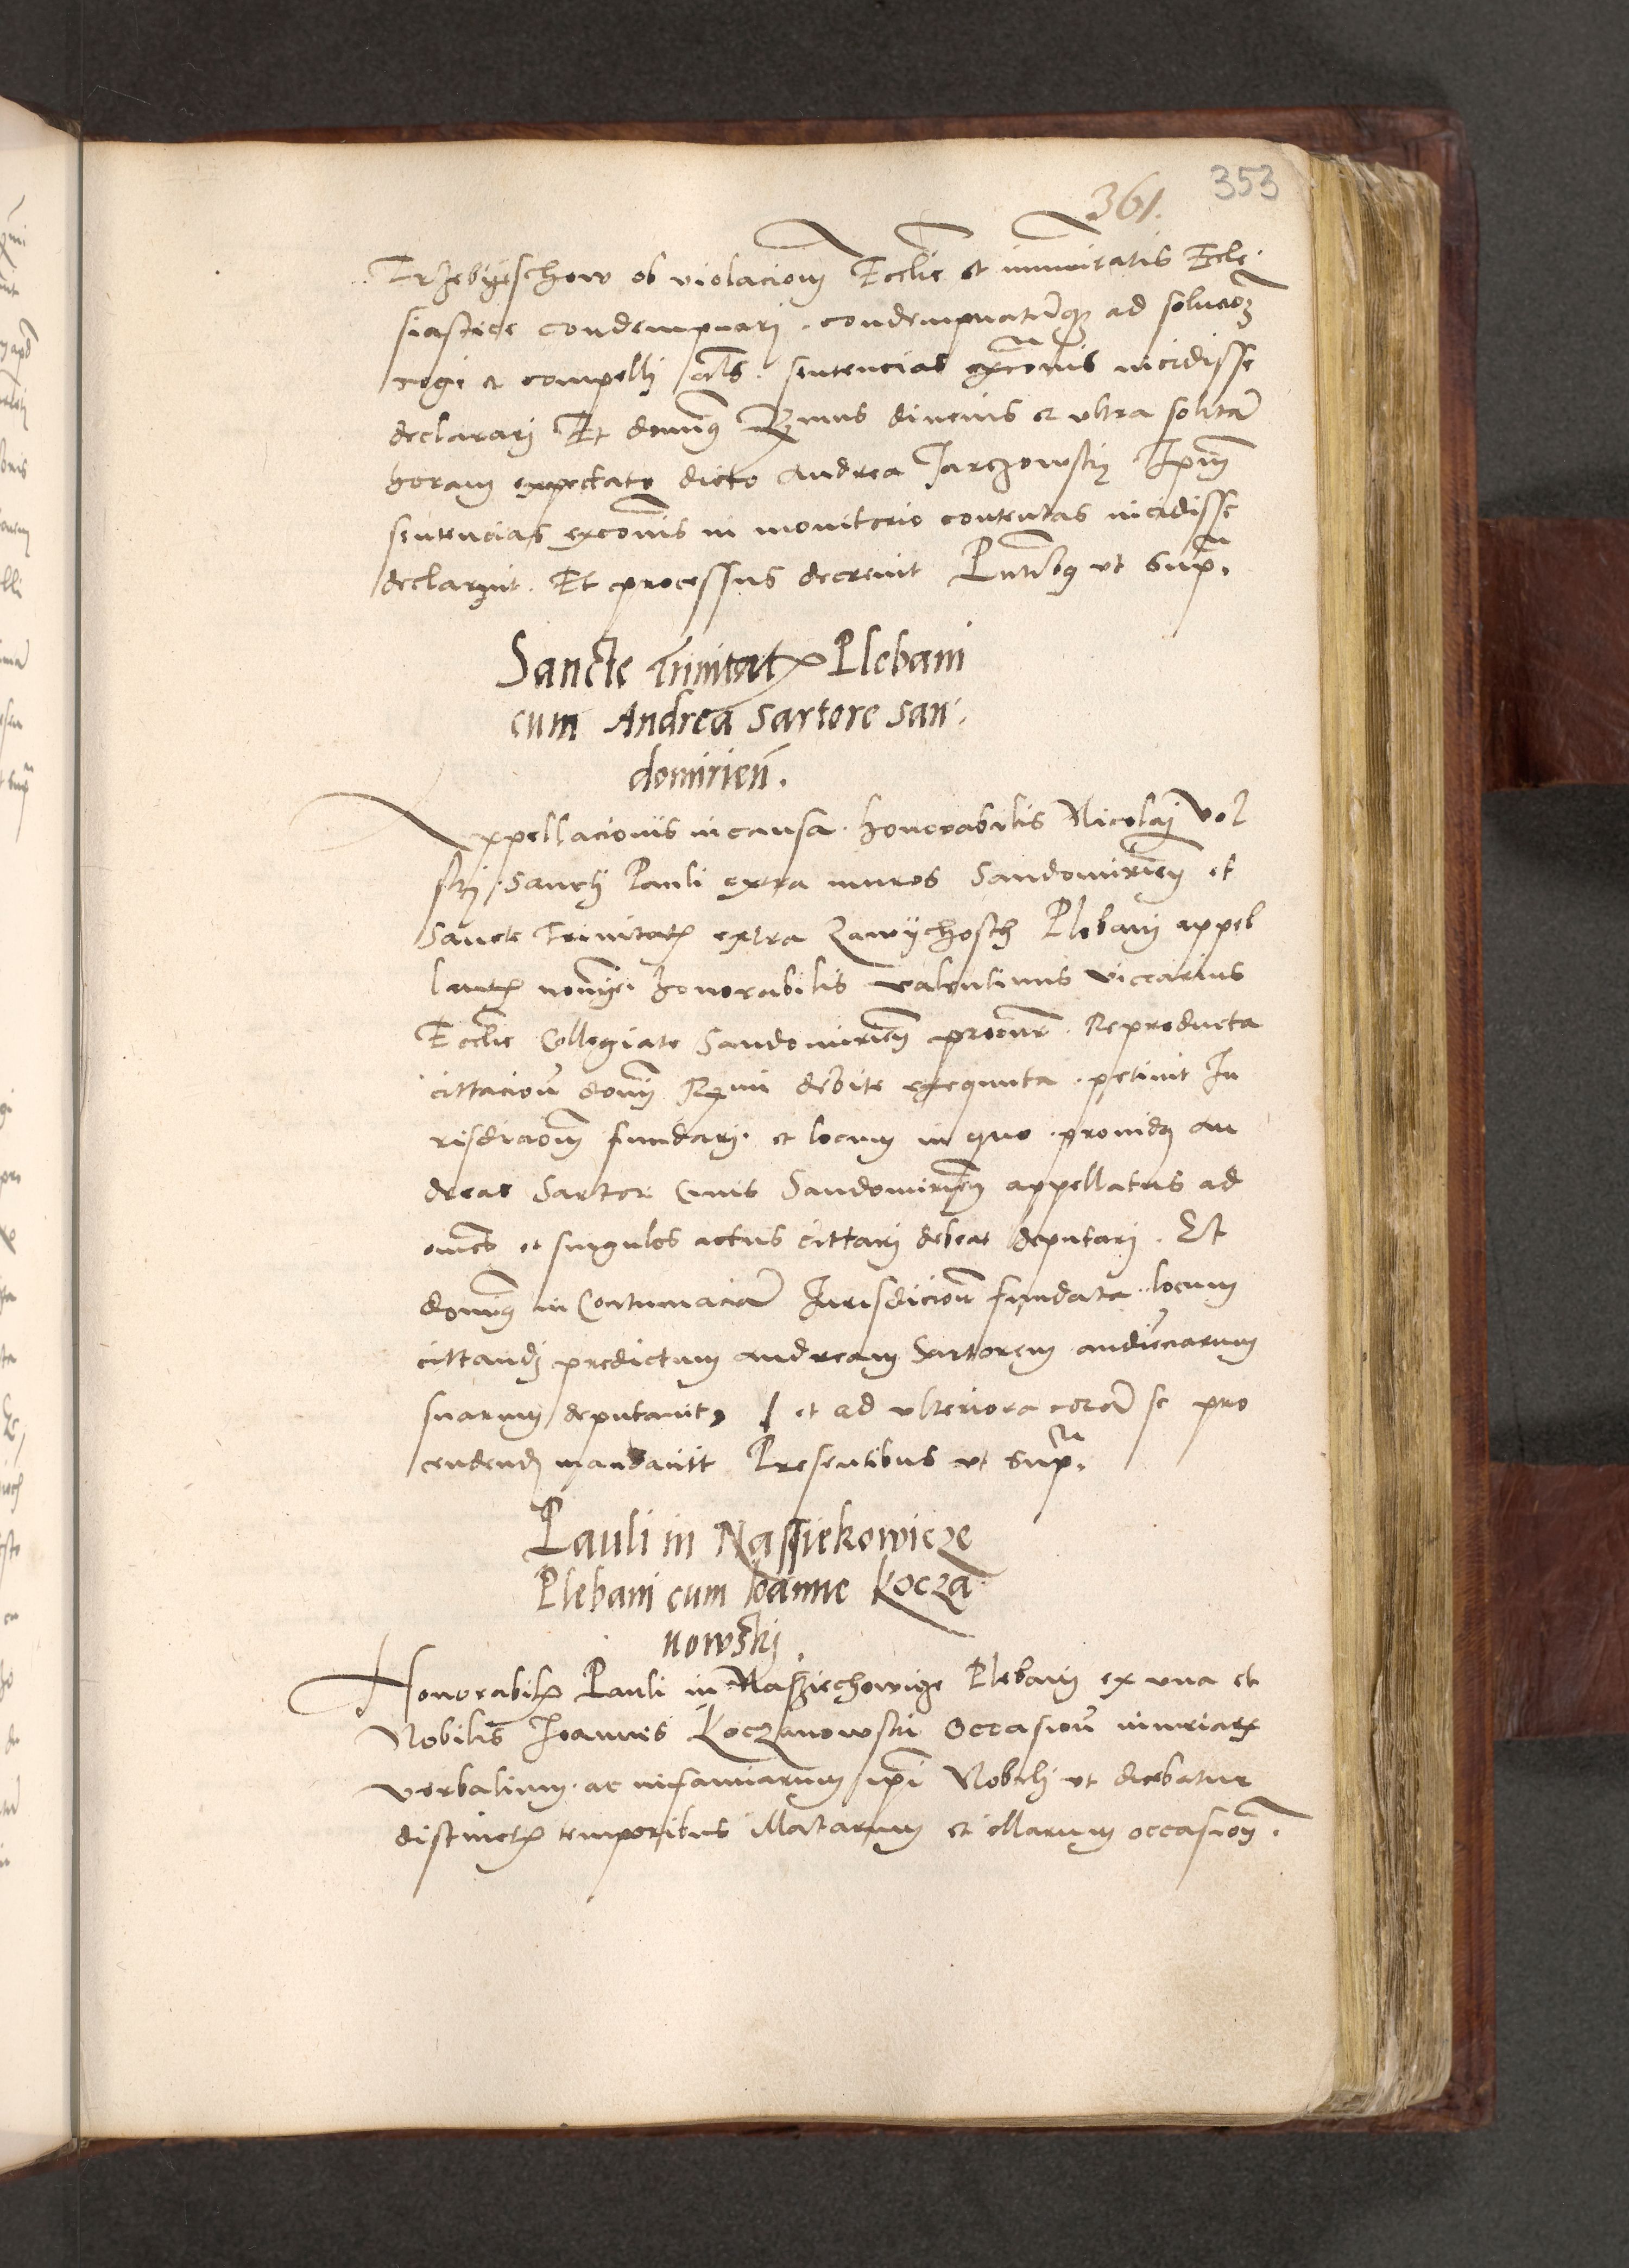 353
361.
Trzebyeschow ob violacionem Ecclie et immunitatis Eccle
siastice condempnari. condempnatumqz ad solucoem
cogi et compelli als. sentencias exconis incidisse
declarari Et domins Rmus divenis et ultra solitam
horam expectato dicto Andrea Jarczowsky Ipm
sentencias exconis in monitorio contentas incidisse
declaravit. Et processus decrevit Pntibq ut supra.
Sancte Trinitatis Plebani
cum Andrea Sartore San
domirien.
Appellacionis in causa. honorabilis Nicolaj Vol
skj. Sancti Pauli extra muros Sandomirien et
Sancte Trinitatis extra Zawychosth Plebani appel
lantis nomine honorabilis Valentinus viccarius
Ecclie Collegiate Sandomirien procur. Reproducta
cittacion domini Rmi debite exequuta. petivit Ju
risdicionem fundari. et locum in quo providus An
dreas Sartor Civis Sandomirien appellatus ad
omnes et singulos actus cittari debeat deputari. Et
domins in Contumaciam Jurisdicion fundata. locum
cittandj predictum Andream Sartorem audienciarum
suarum deputavit, et ad ulteriora coram se pro
cendendj mandavitt Presentibus ut supra.
Pauli in Nassiekowicze
Plebani cum Ioanne Kocza
nowskj.
Honorabilis Pauli in Nassiechowicze Plebani ex una et
Nobilis Joannis Koczanowski Occasion iniuriarum
verbalium. ac infamiarum ipi Nobili ut dicebatur
distinctis temporibus illatarum et illarum occasionem.